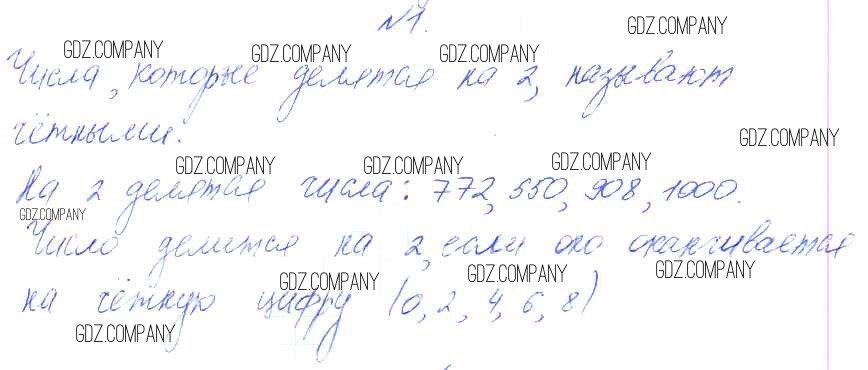 №1.
GDZ.COMPANY
GDZ.COMPANY GDZ.COMPANY GDZ.COMPANY
Числа, которые делятся на 2, называют
чётными.
GDZ.COMPANY
GDZ.COMPANY GDZ.COMPANY GDZ.COMPANY
На 2 делятся числа: 772, 550, 908, 1000.
GDZ.COMPANY
Число делится на 2, если оно оканчивается
GDZ.COMPANY GDZ.COMPANY GDZ.COMPANY
на чётную цифру (0, 2, 4, 6, 8)
GDZ.COMPANY